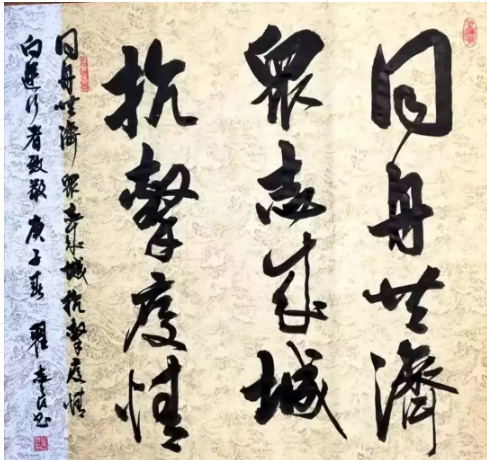 同舟共濟
眾志成城
抗擊疫情
同舟共濟 眾志成城 抗擊疫情
向逆行者致敬 庚子春 翟